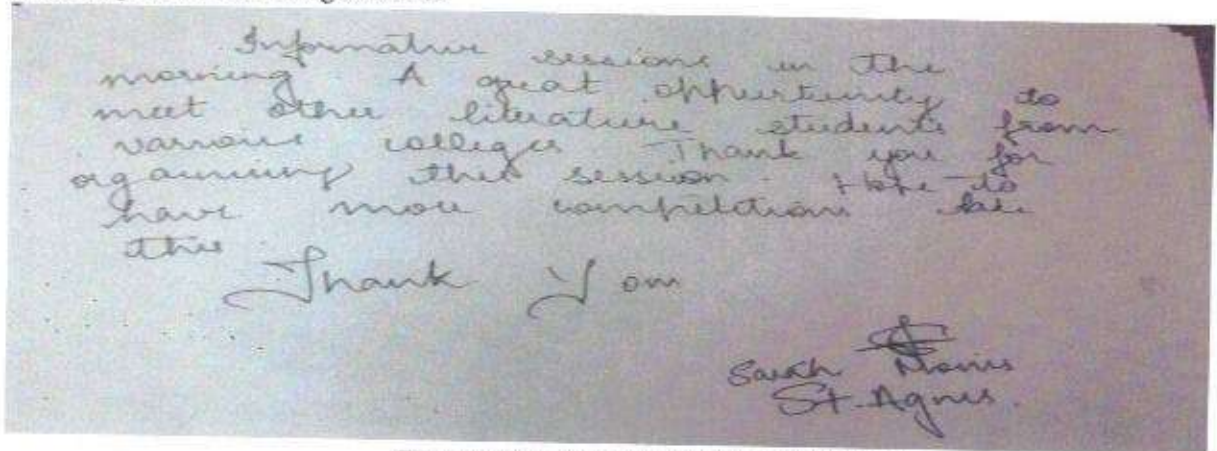 Informative sessions in the
morning. A great oppurtunity to
meet other literature students from
various colleges Thank you for
organising this session. Hope to
have more competitions like
this.
Thank You
Sarah
St. Agnes.